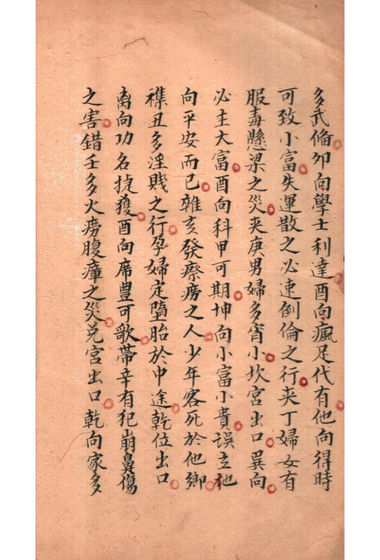 多武倫卯向學士利達酉向瘋足代有他向得時
可致小富失運散之必速倒倫之行夹丁婦女有
服毒懸梁之災夹庚男婦多宵小坎宮出口巽向
必主大富酉向科甲可期坤向小富小貴误立他
向平安而已雜亥發瘵癆之人少年客死於他鄉
襍丑多淫賤之行孕婦定墮胎於中途乾位出口
离向功名捷獲酉向席豐可歌帶辛有犯崩鼻傷
之害錯壬多火癆腹瘴之災兑宮出口乾向家多